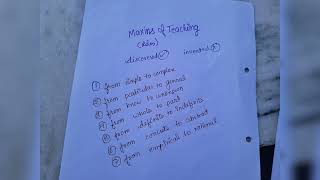 Maxims of Teaching
discovered invented
① from simple to complex
② from particular to general
③ from know to unknown
④ from whole to part
⑤ from definite to indefinite
⑥ from concrete to abstract
⑦ from empirical to rational